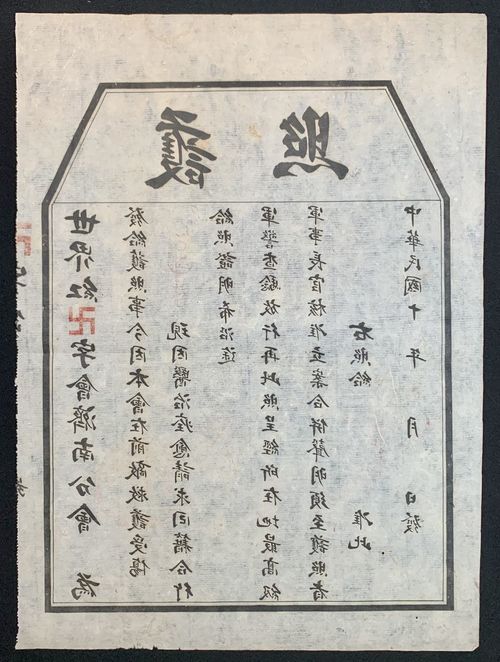 護照
世界紅卍字會濟南分會 為
發給護照事今因本會在前敵救護受傷
現因醫治痊愈請求回籍合行
給照證明希沿途
軍警查驗放行再此照呈經所在地最高級
軍事長官核准立案合併聲明須至護照者
右照給 准此
中華民國十 年 月 日發